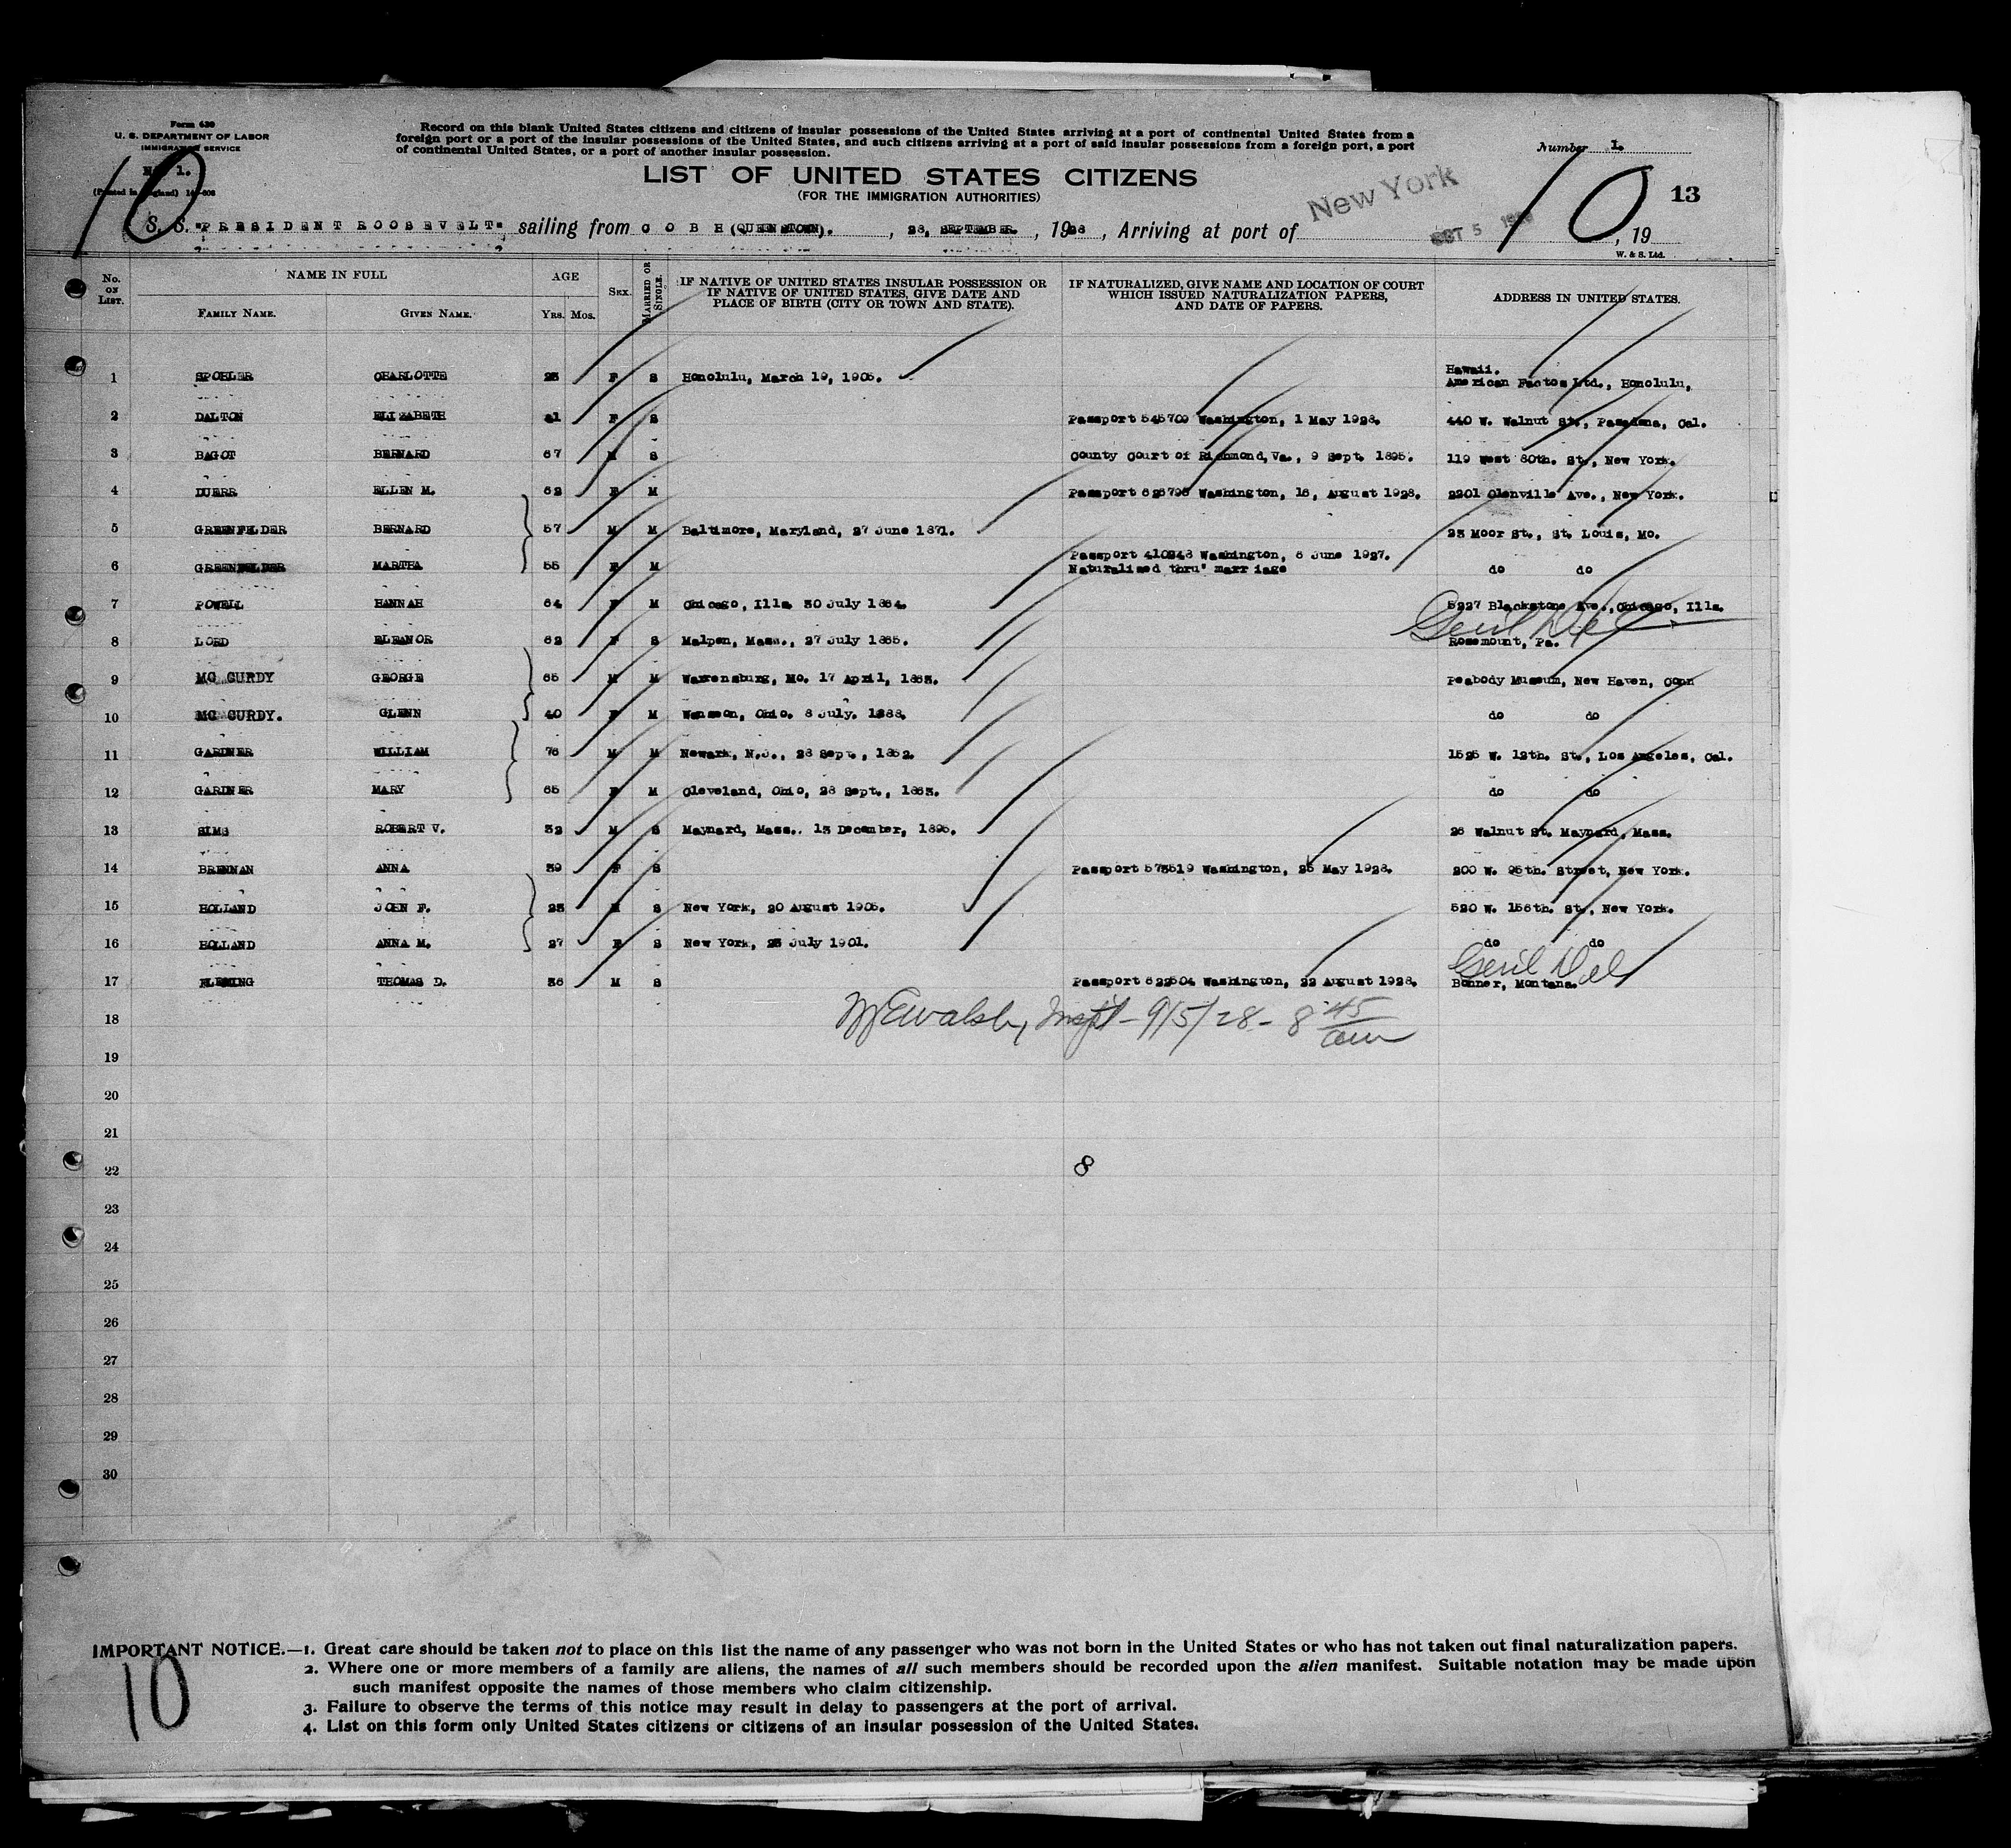 Form 630
U. S. DEPARTMENT OF LABOR
IMMIGRATION SERVICE
No. 1.
(Printed in England)
10
Record on this blank United States citizens and citizens of insular possessions of the United States arriving at a port of continental United States from a
foreign port or a port of the insular possessions of the United States, and such citizens arriving at a port of said insular possessions from a foreign port, a port
of continental United States, or a port of another insular possession.
Number 1.
LIST OF UNITED STATES CITIZENS
(FOR THE IMMIGRATION AUTHORITIES)
New York
10
13
S. S. "PRESIDENT ROOSEVELT" sailing from COBH (QUEENSTOWN). , 28, SEPTEMBER. , 1928 , Arriving at port of OCT 5 , 19
W. & S. Ltd.
No. ON LIST. NAME IN FULL FAMILY NAME. GIVEN NAME. AGE YRS. MOS. SEX. MARRIED OR SINGLE. IF NATIVE OF UNITED STATES INSULAR POSSESSION OR IF NATIVE OF UNITED STATES, GIVE DATE AND PLACE OF BIRTH (CITY OR TOWN AND STATE). IF NATURALIZED, GIVE NAME AND LOCATION OF COURT WHICH ISSUED NATURALIZATION PAPERS, AND DATE OF PAPERS. ADDRESS IN UNITED STATES.
1 SPOHLER CHARLOTTE 23 F S Honolulu, March 19, 1905. Hawaii. American Factos Ltd., Honolulu,
2 DALTON ELIZABETH F S Passport 545709 Washington, 1 May 1928. 440 W. Walnut St., Pasadena, Cal.
3 BAGOT BERNARD 67 M S County Court of Richmond, Va., 9 Sept. 1895. 119 West 80th. St., New York.
4 DUERR ELLEN M. 62 F M Passport Washington, 16, August 1928. 2201 Glenville Ave., New York.
5 GREENFELDER BERNARD 57 M M Baltimore, Maryland, 27 June 1871. 23 Moor St., St. Louis, Mo.
Passport 410248 Washington, 6 June 1927.
6 GREENFELDER MARTHA 55 F M Naturalised thru' marriage do do
7 POWELL HANNAH 64 F M Chicago, Ills. 30 July 1864. 5227 Blackstone Ave., Chicago, Ills.
8 LORD ELEANOR 62 F S Malpen, Mass., 27 July 1865. Rosemount, Pa.
9 MC CURDY GEORGE 65 M M Warrensburg, Mo. 17 April, 1863. Peabody Museum, New Haven, Conn
10 MC CURDY. GLENN 40 F M Wauseon, Ohio. 8 July. 1888. do do
11 GARDNER WILLIAM 76 M M Newark, N.J., 28 Sept., 1852. 1525 W. 12th. St., Los Angeles, Cal.
12 GARDNER MARY 65 F M Cleveland, Ohio, 28 Sept., 1863. do do
13 SIMS ROBERT V. 32 M S Maynard, Mass. 13 December, 1895. 26 Walnut St. Maynard, Mass.
14 BRENNAN ANNA 39 F S Passport 573519 Washington, 25 May 1928. 200 W. 95th. Street, New York.
15 HOLLAND JOHN F. 23 M S New York, 20 August 1905. 520 W. 156th. St., New York.
16 HOLLAND ANNA M. 27 F S New York, 23 July 1901. do do
17 FLEMING THOMAS D. 36 M S Passport 622504 Washington, 22 August 1928. Bonner, Montana.
18 Walsh, Inspt - 9/5/28 - 8 45 am
19
20
21
22 8
23
24
25
26
27
28
29
30
IMPORTANT NOTICE.—1. Great care should be taken not to place on this list the name of any passenger who was not born in the United States or who has not taken out final naturalization papers.
2. Where one or more members of a family are aliens, the names of all such members should be recorded upon the alien manifest. Suitable notation may be made upon
such manifest opposite the names of those members who claim citizenship.
3. Failure to observe the terms of this notice may result in delay to passengers at the port of arrival.
4. List on this form only United States citizens or citizens of an insular possession of the United States.
10